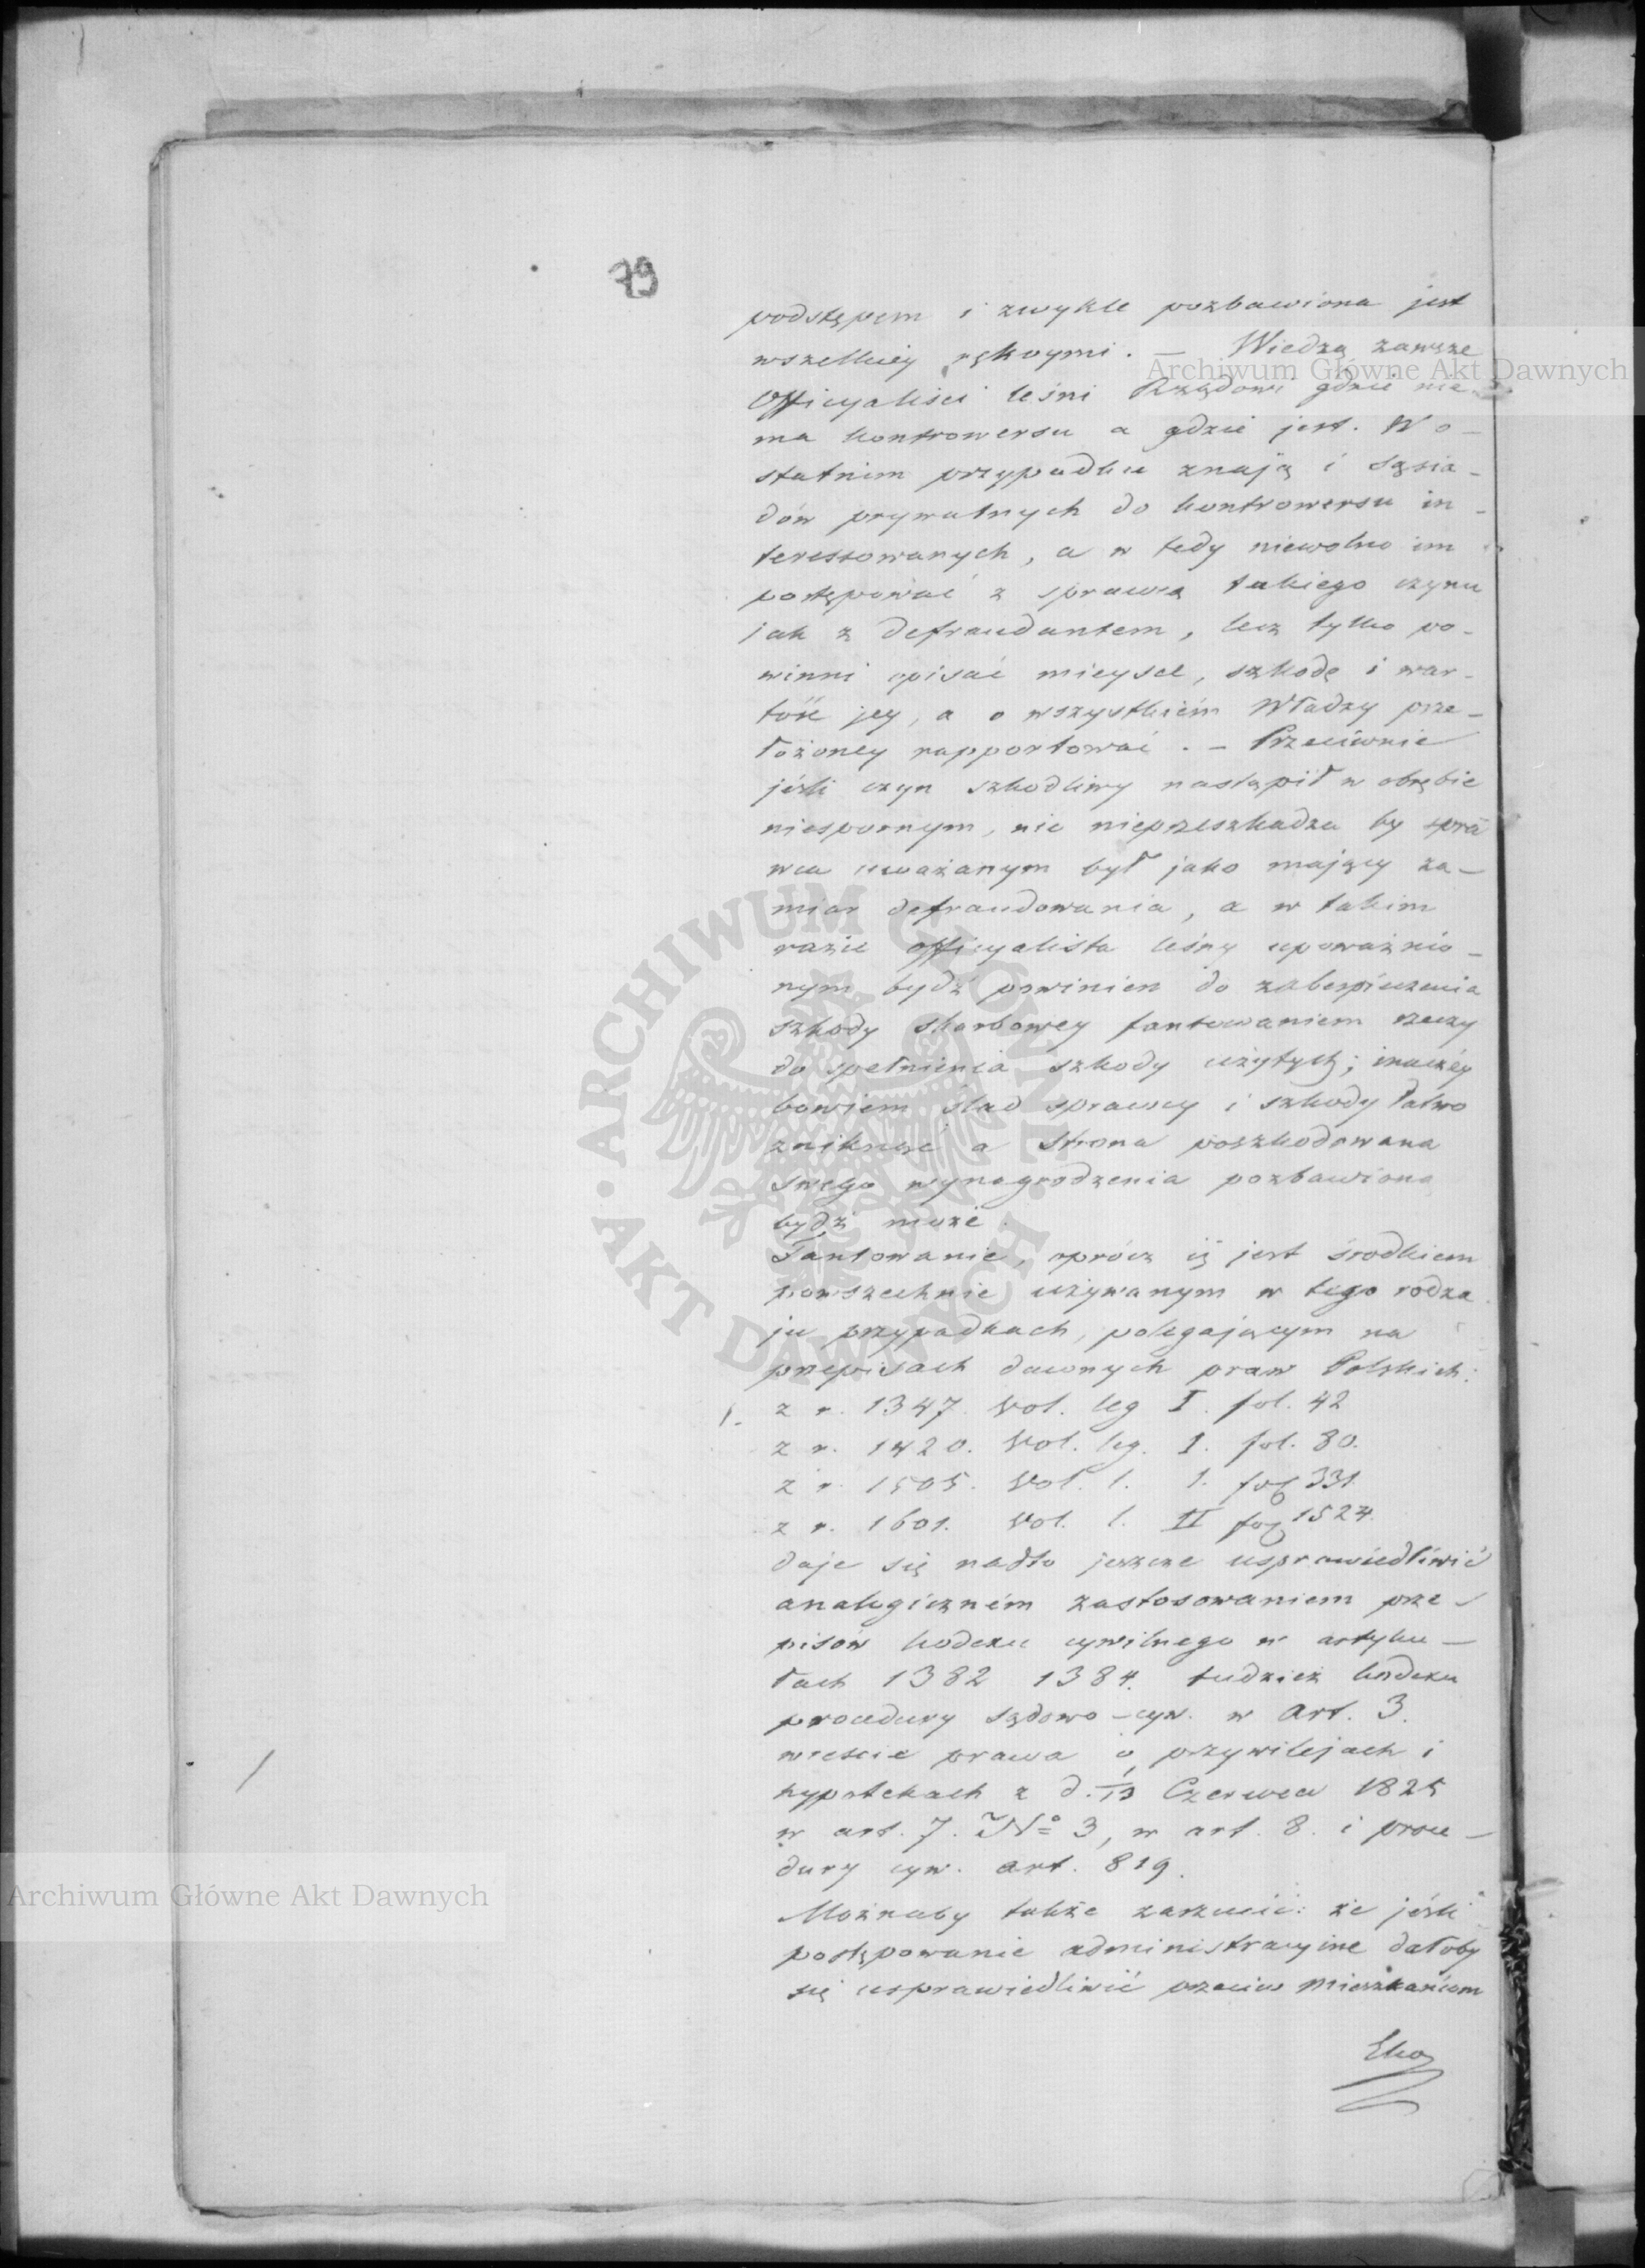 79
podstępem i zwykle pozbawiona jest
wszelkiéy rękoymi. — Wiedzą zawsze
Officyaliści leśni Rządowi gdzie nie-
ma kontrowersu a gdzie jest. W o-
statnim przypadku znają i sąsia-
dów prywatnych do kontrowersu in-
teressowanych, a w tedy niewolno im
postępować z sprawcą takiego czynu
jak z defraudantem, lecz tylko po-
winni opisać mieysce, szkodę i war-
tość jey, a o wszystkiém Władzy prze-
łożoney rapportować. — Przeciwnie
jéśli czyn szkodliwy nastąpił w obrębie
niespornym, nic nieprzeszkadza by spra
wca uważanym był jako mający za-
miar defraudowania, a w takim
razie officyalista leśny upoważnio-
nym bydź powinien do zabespieczenia
szkody skarbowey fantowaniem rzeczy
do spełnienia szkody użytych; inaczéy
bowiem ślad sprawcy i szkody łatwo
zniknąć a strona poszkodowana
swego wynagrodzenia pozbawiona
bydź może.
Fantowanie, oprócz iż jest środkiem
powszechnie używanym w tego rodza
ju przypadkach, polegającym na
przepisach dawnych praw Polskich:
1. z r. 1347. Vol. leg I. fol. 42
z r. 1420. Vol. leg. I. fol. 80.
z r. 1505. Vol. l. I. fol 331.
z r. 1601. Vol. l. II fol 1524.
daje się nadto jeszcze usprawiedliwić
analogiczném zastosowaniem prze-
pisów kodexu cywilnego w artyku-
łach 1382 1384. tudzież kodexu
procedury sądowo-cyw. w Art. 3.
wreście prawa o przywilejach i
hypotekach z d. 1/13 Czerwca 1825
w art. 7. No 3, w art. 8. i proce-
dury cyw. art. 819.
Możnaby także zarzucić: że jéśli
postępowanie administracyjne dałoby
się usprawiedliwić przeciw mieszkańcom
Archiwum Główne Akt Dawnych
ARCHIWUM GŁÓWNE • AKT DAWNYCH •
Archiwum Główne Akt Dawnych